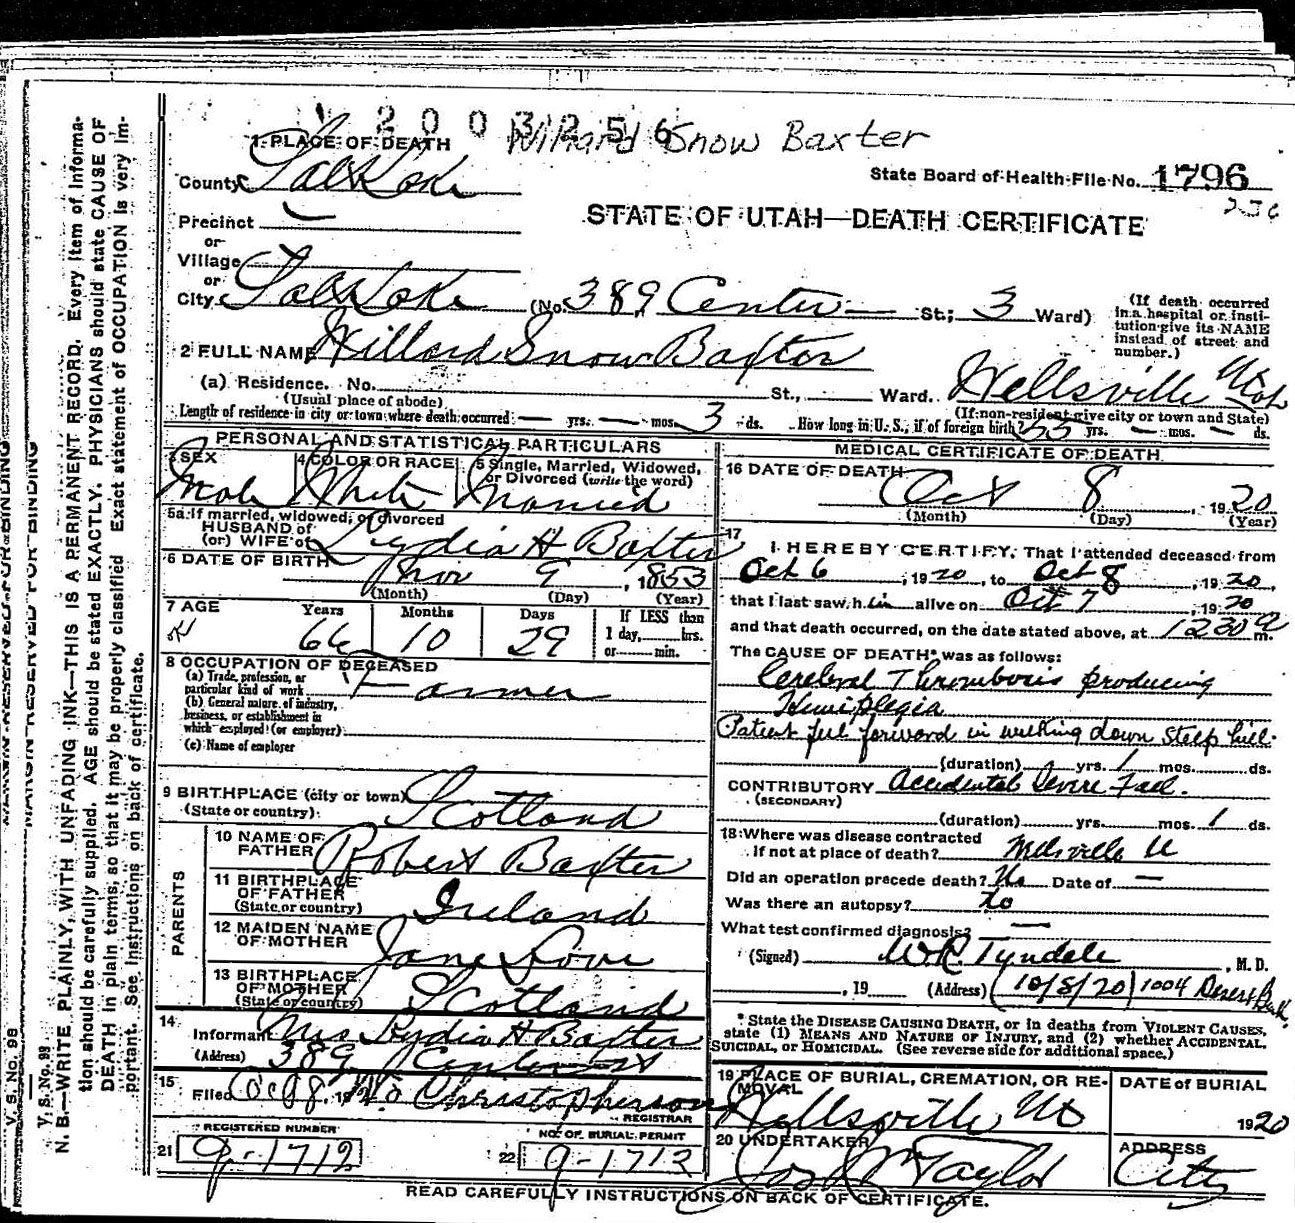 2003256
Willard Snow Baxter
1 PLACE OF DEATH
County Salt Lake
State Board of Health-File No. 1796
236
STATE OF UTAH—DEATH CERTIFICATE
Precinct
or
Village
or
City Salt Lake (No. 389 Center St.; 3 Ward)
(If death occurred in a hospital or institution give its NAME instead of street and number.)
2 FULL NAME Willard Snow Baxter
(a) Residence. No. St., Ward. Wellsville Utah
(Usual place of abode) (If non-resident give city or town and State)
Length of residence in city or town where death occurred — yrs. — mos. 3 ds. How long in U. S., if of foreign birth? 53 yrs. — mos. — ds.
PERSONAL AND STATISTICAL PARTICULARS
3 SEX 4 COLOR OR RACE 5 Single, Married, Widowed, or Divorced (write the word)
Male White Married
5a If married, widowed, or divorced
HUSBAND of
(or) WIFE of Lydia H Baxter
6 DATE OF BIRTH Nov 9, 1853
(Month) (Day) (Year)
7 AGE Years Months Days If LESS than 1 day, hrs. or min.
66 10 29
8 OCCUPATION OF DECEASED
(a) Trade, profession, or particular kind of work Farmer
(b) General nature of industry, business, or establishment in which employed (or employer)
(c) Name of employer
9 BIRTHPLACE (city or town)
(State or country) Scotland
PARENTS
10 NAME OF FATHER Robert Baxter
11 BIRTHPLACE OF FATHER (State or country) Ireland
12 MAIDEN NAME OF MOTHER Jane Love
13 BIRTHPLACE OF MOTHER (State or country) Scotland
14 Informant Mrs Lydia H Baxter
(Address) 389 Center St
15 Filed Oct 8, 19 Christopherson
REGISTRAR
REGISTERED NUMBER NO. OF BURIAL PERMIT
21 9-1712 22 9-1712
MEDICAL CERTIFICATE OF DEATH
16 DATE OF DEATH Oct 8, 1920
(Month) (Day) (Year)
17 I HEREBY CERTIFY, That I attended deceased from
Oct 6, 1920, to Oct 8, 1920,
that I last saw him alive on Oct 7, 1920
and that death occurred, on the date stated above, at 1230 a m.
The CAUSE OF DEATH* was as follows:
Cerebral Thrombosis producing
Hemiplegia
Patient fell forward in walking down steep hill.
(duration) yrs. 1 mos. ds.
CONTRIBUTORY Accidental Severe Fall.
(SECONDARY)
(duration) yrs. mos. 1 ds.
18 Where was disease contracted
if not at place of death? Wellsville U
Did an operation precede death? No Date of —
Was there an autopsy? No
What test confirmed diagnosis? —
(Signed) W R Tyndale, M. D.
, 19 (Address) (10/8/20) 1004 Deseret Bank,
* State the DISEASE CAUSING DEATH, or in deaths from VIOLENT CAUSES, state (1) MEANS AND NATURE OF INJURY, and (2) whether ACCIDENTAL, SUICIDAL, or HOMICIDAL. (See reverse side for additional space.)
19 PLACE OF BURIAL, CREMATION, OR REMOVAL DATE of BURIAL
Wellsville Ut 1920
20 UNDERTAKER ADDRESS
Jos Wm Taylor City
READ CAREFULLY INSTRUCTIONS ON BACK OF CERTIFICATE.
MARGIN RESERVED FOR BINDING
MARGIN RESERVED FOR BINDING
V. S. No. 98
V. S. No. 99
N. B.—WRITE PLAINLY, WITH UNFADING INK—THIS IS A PERMANENT RECORD. Every item of information should be carefully supplied. AGE should be stated EXACTLY. PHYSICIANS should state CAUSE OF DEATH in plain terms, so that it may be properly classified. Exact statement of OCCUPATION is very important. See instructions on back of certificate.